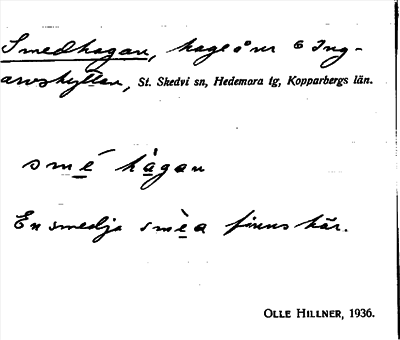 Smedhagan, hage öm 6 Ing-
arvshyttan, St. Skedvi sn, Hedemora tg, Kopparbergs län.
smé hàgan
En smedja smèa finns här.
OLLE HILLNER, 1936.